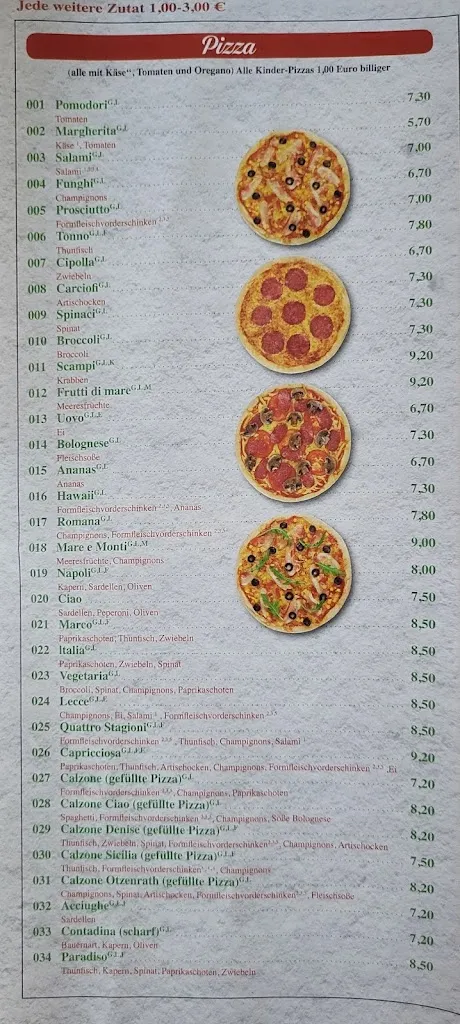 Jede weitere Zutat 1,00-3,00 €
Pizza
(alle mit Käse, Tomaten und Oregano) Alle Kinder-Pizzas 1,00 Euro billiger
001 Pomodori G,L 7,30
Tomaten
002 Margherita G,L 5,70
Käse, Tomaten
003 Salami G,L 7,00
Salami
004 Funghi G,L 6,70
Champignons
005 Prosciutto G,L 7,00
Formfleischvorderschinken
006 Tonno G,L,F 7,80
Thunfisch
007 Cipolla G,L 6,70
Zwiebeln
008 Carciofi G,L 7,30
Artischocken
009 Spinaci G,L 7,30
Spinat
010 Broccoli G,L 7,30
Broccoli
011 Scampi G,L,K 9,20
Krabben
012 Frutti di mare G,L,M 9,20
Meeresfrüchte
013 Uovo G,L,E 6,70
Ei
014 Bolognese G,L 7,30
Fleischsoße
015 Ananas G,L 6,70
Ananas
016 Hawaii G,L 7,30
Formfleischvorderschinken, Ananas
017 Romana G,L 7,80
Champignons, Formfleischvorderschinken
018 Mare e Monti G,L,M 9,00
Meeresfrüchte, Champignons
019 Napoli G,L,F 8,00
Kapern, Sardellen, Oliven
020 Ciao 7,50
Sardellen, Peperoni, Oliven
021 Marco G,L,F 8,50
Paprikaschoten, Thunfisch, Zwiebeln
022 Italia G,L 8,50
Paprikaschoten, Zwiebeln, Spinat
023 Vegetaria G,L 8,50
Broccoli, Spinat, Champignons, Paprikaschoten
024 Lecce G,L,E 8,50
Champignons, Ei, Salami, Formfleischvorderschinken
025 Quattro Stagioni G,L,F 8,50
Formfleischvorderschinken, Thunfisch, Champignons, Salami
026 Capricciosa G,L,F,E 9,20
Paprikaschoten, Thunfisch, Artischocken, Champignons, Formfleischvorderschinken, Ei
027 Calzone (gefüllte Pizza) G,L 7,20
Formfleischvorderschinken, Champignons, Paprikaschoten
028 Calzone Ciao (gefüllte Pizza) G,L 8,20
Spaghetti, Formfleischvorderschinken, Champignons, Soße Bolognese
029 Calzone Denise (gefüllte Pizza) G,L,F 8,20
Thunfisch, Zwiebeln, Spinat, Formfleischvorderschinken, Champignons, Artischocken
030 Calzone Sicilia (gefüllte Pizza) G,L,F 7,50
Thunfisch, Formfleischvorderschinken, Champignons
031 Calzone Otzenrath (gefüllte Pizza) G,L 8,20
Champignons, Spinat, Artischocken, Formfleischvorderschinken, Fleischsoße
032 Acciughe 7,20
Sardellen
033 Contadina (scharf) G,L 7,20
Bauernart, Kapern, Oliven
034 Paradiso G,L,F 8,50
Thunfisch, Kapern, Spinat, Paprikaschoten, Zwiebeln